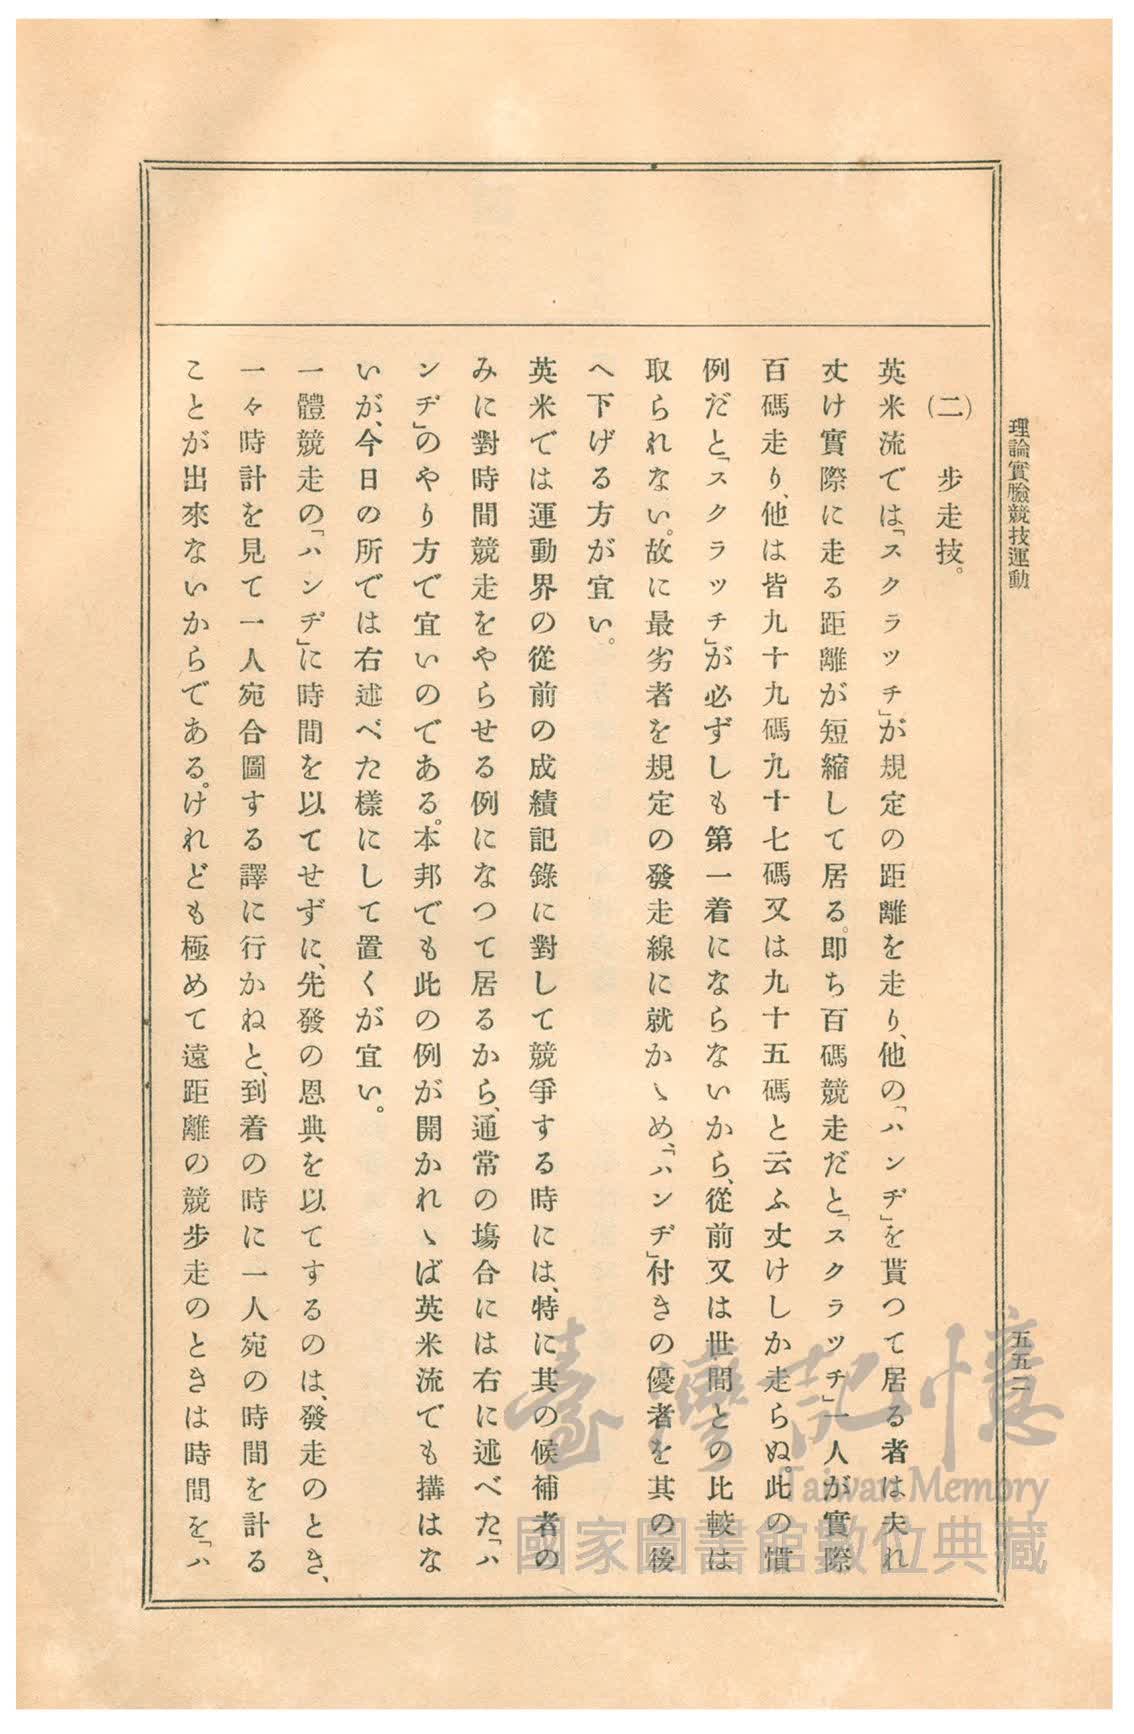 理論實驗競技運動
五五二
(二) 步走技。
英米流では「スクラッチ」が規定の距離を走り、他の「ハンヂ」を貰つて居る者は夫れ
丈け實際に走る距離が短縮して居る。即ち百碼競走だと「スクラッチ」一人が實際
百碼走り、他は皆九十九碼九十七碼又は九十五碼と云ふ丈けしか走らぬ。此の慣
例だと「スクラッチ」が必ずしも第一着にならないから、從前又は世間との比較は
取られない。故に最劣者を規定の發走線に就かゝめ、「ハンヂ」付きの優者を其の後
へ下げる方が宜い。
英米では運動界の從前の成績記錄に對して競爭する時には、特に其の候補者の
みに對時間競走をやらせる例になつて居るから、通常の塲合には右に述べた「ハ
ンヂ」のやり方で宜いのである。本邦でも此の例が開かれゝば英米流でも搆はな
いが、今日の所では右述べた樣にして置くが宜い。
一體競走の「ハンヂ」に時間を以てせずに、先發の恩典を以てするのは、發走のとき、
一々時計を見て一人宛合圖する譯に行かねと、到着の時に一人宛の時間を計る
ことが出來ないからである。けれども極めて遠距離の競步走のときは時間を「ハ
臺灣記憶
Taiwan Memory
國家圖書館數位典藏